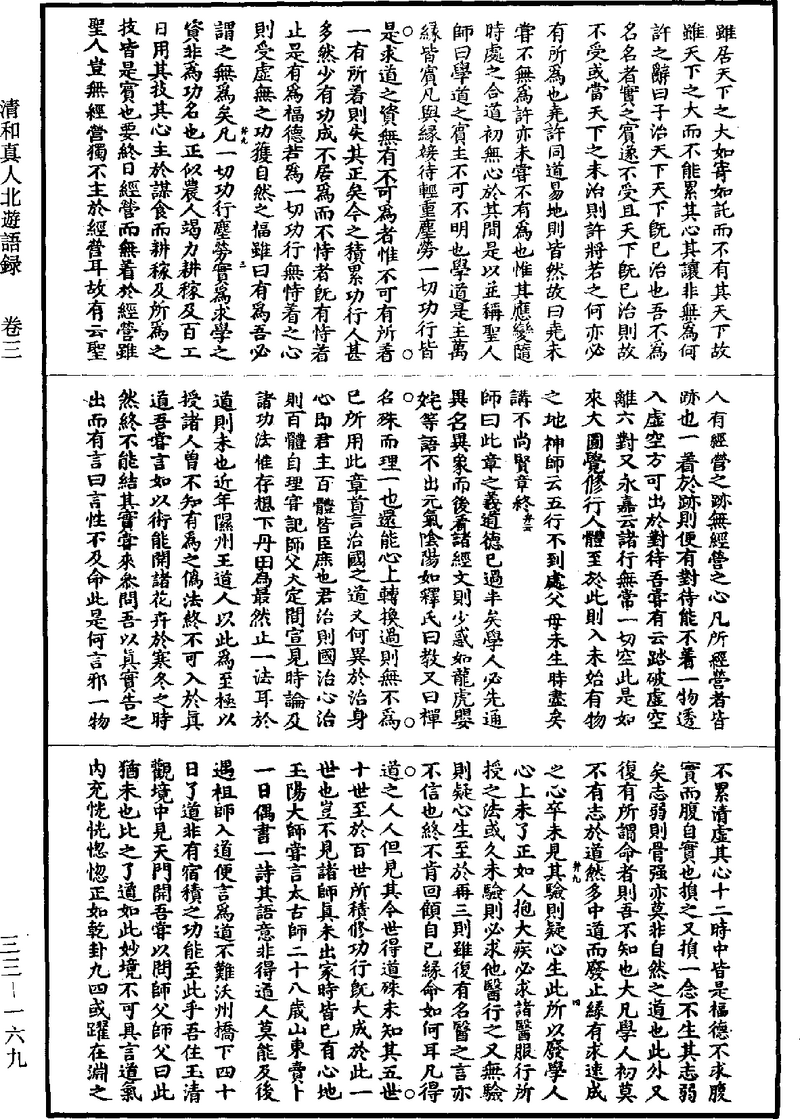 雖居天下之大如寄如託而不有其天下故
雖天下之大而不能累其心其讓非無爲何
許之辭曰子治天下天下旣已治也吾不爲
名名者實之賓遂不受且天下旣已治則故
不受或當天下之未治則許將若之何亦必
有所爲也堯許同道易地則皆然故曰堯未
嘗不無爲許亦未嘗不有爲也惟其應變隨
時處之合道初無心於其間是以並稱聖人
師曰學道之賓主不可不明也學道是主萬
緣皆賓凡與緣接待輕重塵勞一切功行皆
是求道之資無有不可爲者惟不可有所着
一有所着則失其正矣今之積累功行人甚
多然少有功成不居爲而不恃者旣有恃者
止是有爲福德若爲一切功行無恃着之心
則受虛無之功獲自然之福雖曰有爲吾必
謂之無爲矣凡一切功行塵勞實爲求學之
資非爲功名也正似農人竭力耕稼及百工
日用其技其心主於謀食而耕稼及所爲之
技皆是賓也要終日經營而無着於經營雖
聖人豈無經營獨不主於經營耳故有云聖
人有經營之跡無經營之心凡所經營者皆
跡也一着於跡則便有對待能不着一物透
入虛空方可出於對待吾嘗有云踏破虛空
離六對又永嘉云諸行無常一切空此是如
來大圓覺修行人體至於此則入未始有物
之地神師云五行不到處父母未生時盡矣
講不尚賢章終
師曰此章之義道德已過半矣學人必先通
異名異象而後看諸經文則少惑如龍虎嬰
姹等語不出元氣陰陽如釋氏曰教又曰禪
名殊而理一也還能心上轉換過則無不爲
已所用此章首言治國之道又何異於治身
心即君主百體皆臣庶也君治則國治心治
則百體自理寄記師父大定間宣見時論及
諸功法惟存想下丹田爲最然止一法耳於
道則未也近年隰州王道人以此爲至極以
授諸人曾不知有爲之偽法終不可入於眞
道吾嘗言如以術能開諸花卉於寒冬之時
然終不能結其實嘗來參問吾以眞實告之
出而有言曰言性不及命此是何言邪一物
不累清虛其心十二時中皆是福德不求腹
實而腹自實也損之又損一念不生其志弱
矣志弱則骨强亦莫非自然之道也此外又
復有所謂命者則吾不知也大凡學人初莫
不有志於道然多中道而廢止緣有求速成
之心卒未見其驗則疑心生此所以廢學人
心上未了正如人抱大疾必求諸醫服行所
授之法或久未驗則必求他醫行之又無驗
則疑心生至於再三則雖復有名醫之言亦
不信也終不肯回顧自已緣命如何耳凡得
道之人人但見其今世得道殊未知其五世
十世至於百世所積修功行旣大成於此一
世也豈不見諸師眞未出家時皆已有心地
玉陽大師嘗言太古師二十八歲山東賣卜
一日偶書一詩其語意非得道人莫能及後
遇祖師入道便言爲道不難沃州橋下四十
日了道非有宿積之功能至此乎吾住玉清
觀境中見天門開吾嘗以問師父師父曰此
猶未也比之了道如此妙境不可具言道氣
內充恍恍惚惚正如乾卦九四或躍在淵之
清和真人北遊語録　卷三
三三－一六九